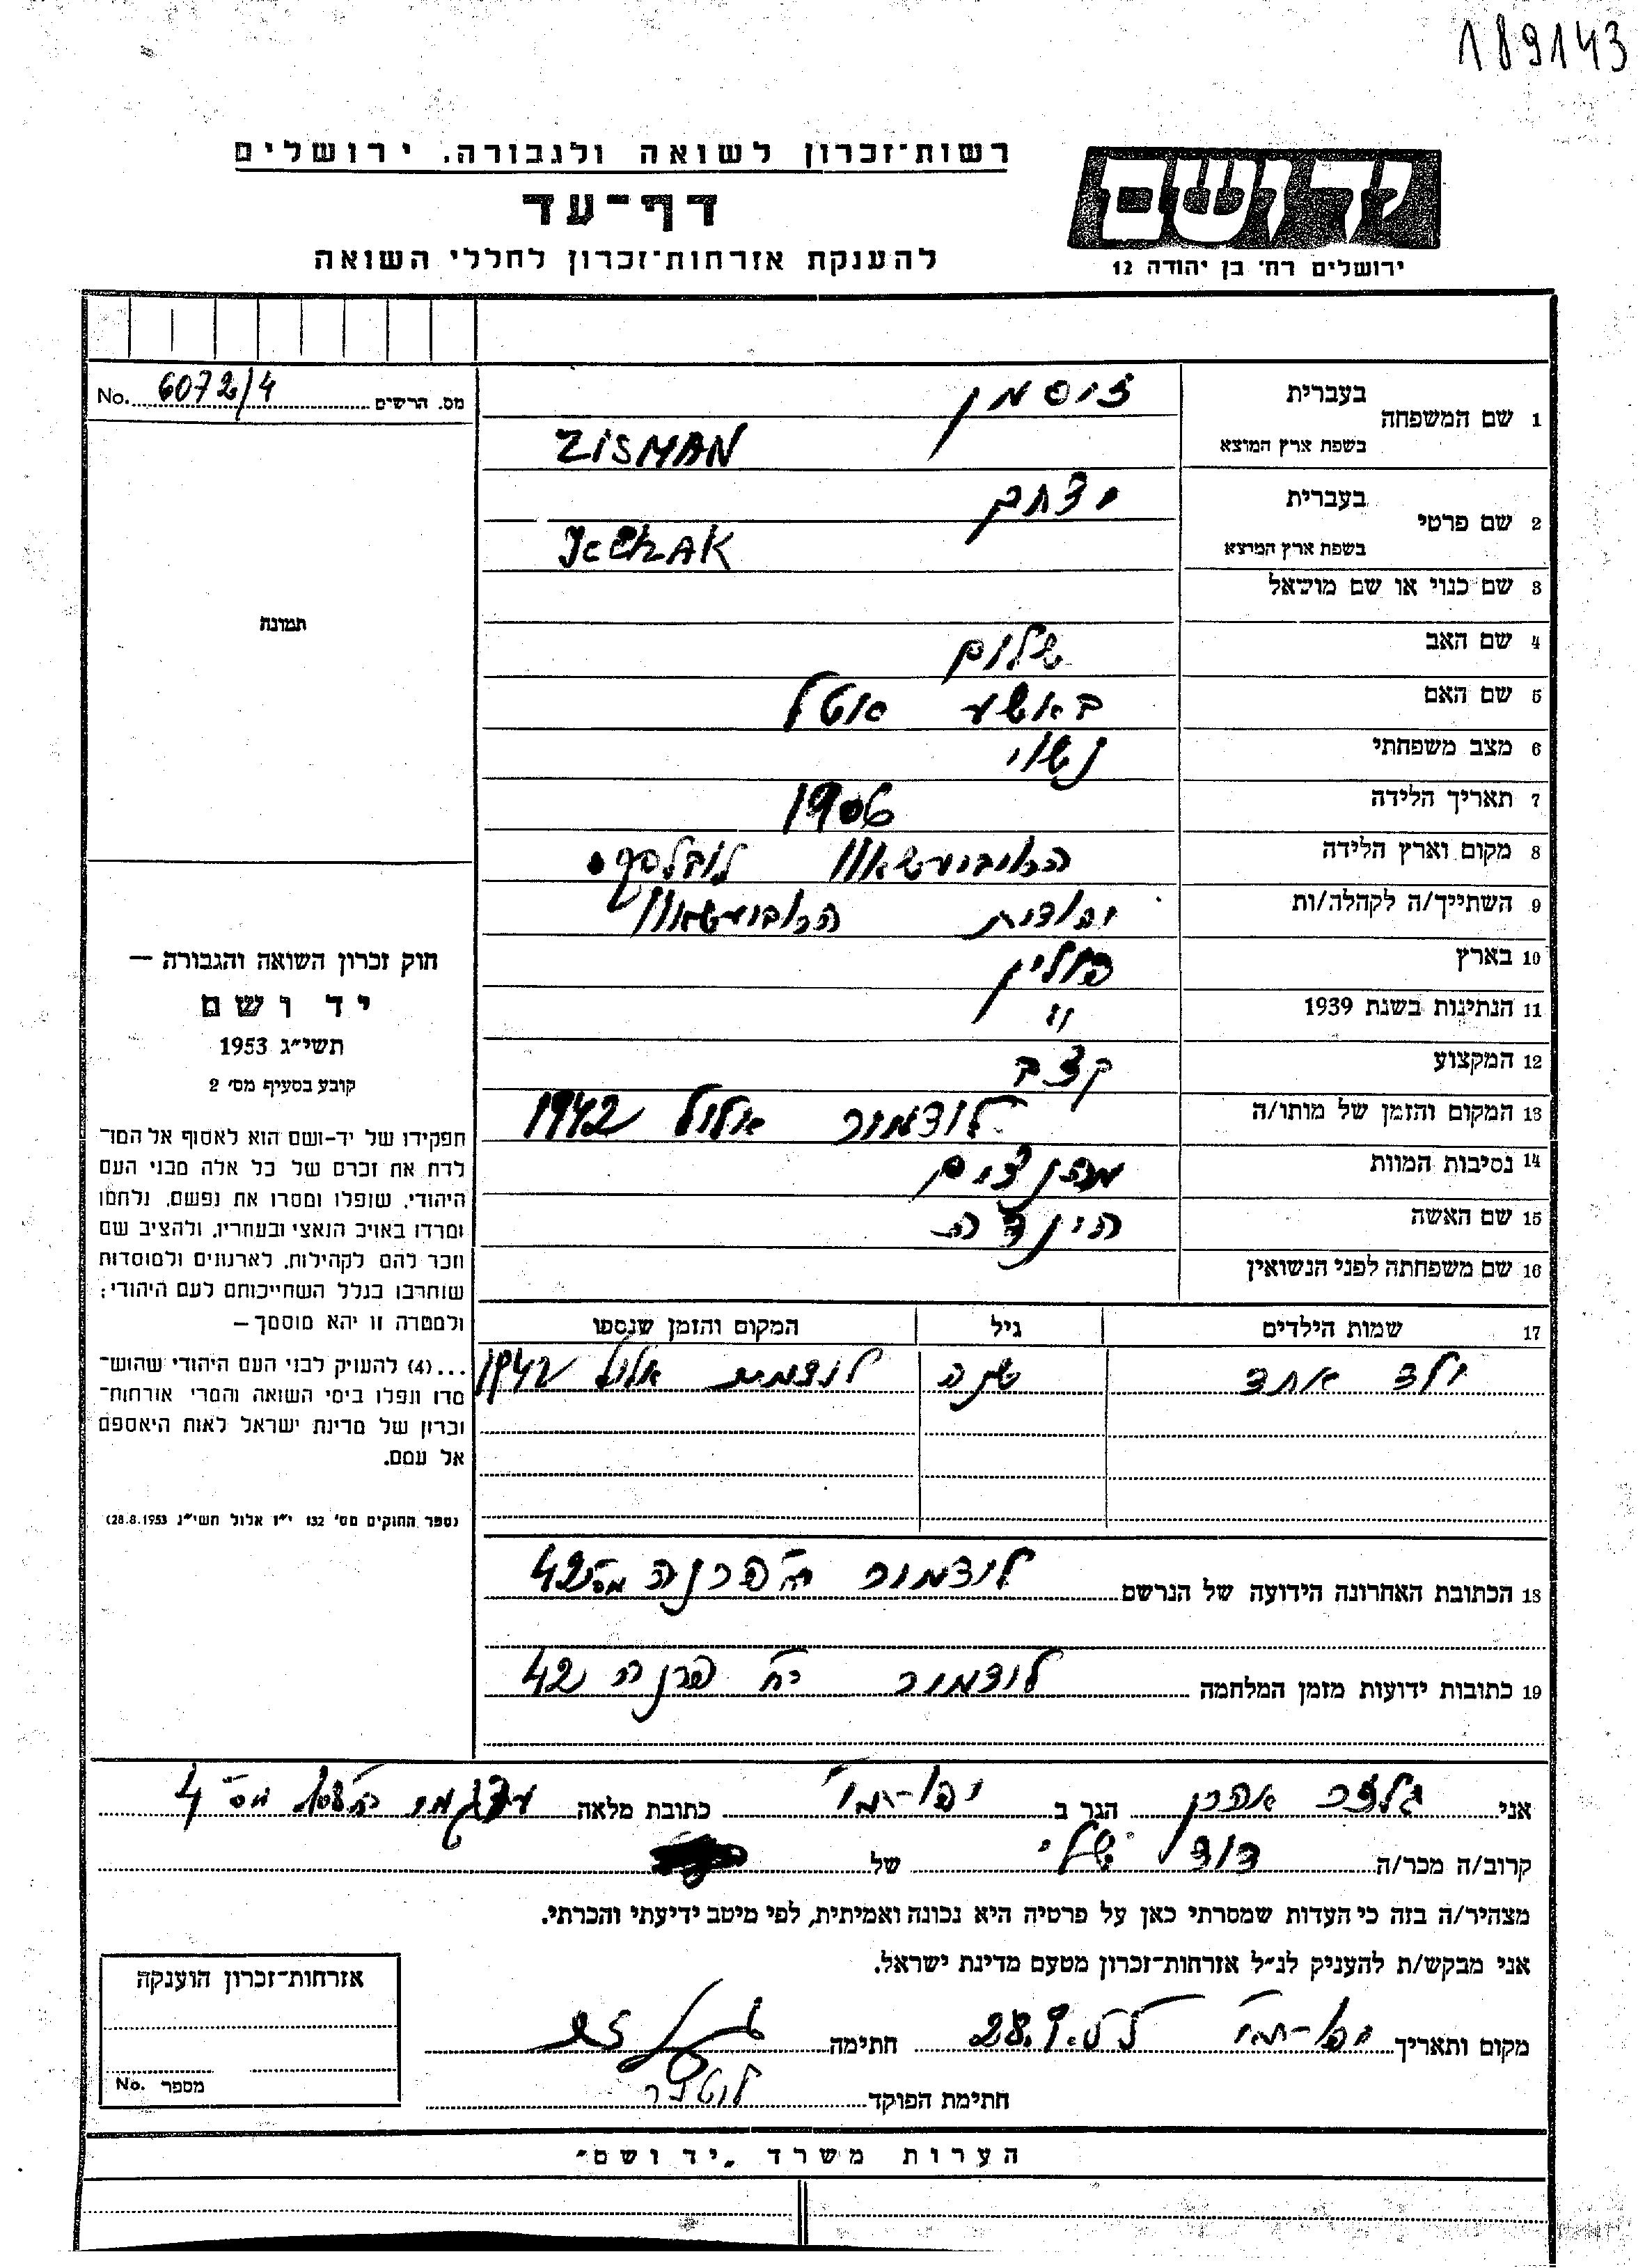 189143
רשות־זכרון לשואה ולגבורה. ירושלים
דף־עד
להענקת אזרחות־זכרון לחללי השואה
יד ושם
ירושלים רח' בן יהודה 12
מס. הרשים No. 6072/4
1 שם המשפחה
בעברית זוסמן
בשפת ארץ המוצא ZISMAN
2 שם פרטי
בעברית יצחק
בשפת ארץ המוצא
תמונה
3 שם כנוי או שם מושאל
4 שם האב שלום
5 שם האם באשע אטל
6 מצב משפחתי נשוי
7 תאריך הלידה 1906
8 מקום וארץ הלידה הרוביעשאוו
9 השתייך/ה לקהלה/ות יהודית הרוביעשאוו
10 בארץ פולין
11 הנתינות בשנת 1939 "
12 המקצוע קצב
13 המקום והזמן של מותו/ה לודמיר אלול 1942
14 נסיבות המוות
15 שם האשה הינדה
16 שם משפחתה לפני הנשואין
17 שמות הילדים גיל המקום והזמן שנספו
ילד אחד שנה אלול 1942
18 הכתובת האחרונה הידועה של הנרשם לודמיר רח' פרנה מס' 42
19 כתובות ידועות מזמן המלחמה לודמיר רח' פרנה 42
חוק זכרון השואה והגבורה —
יד ושם
תשי״ג 1953
קובע בסעיף מס׳ 2
תפקידו של יד-ושם הוא לאסוף אל המו־
לדת את זכרם של כל אלה מבני העם
היהודי, שנפלו ומסרו את נפשם, נלחמו
ומרדו באויב הנאצי ובעוזריו, ולהציב שם
וזכר להם לקהילות, לארגונים ולמוסדות
שנחרבו בגלל השתייכותם לעם היהודי;
ולמטרה זו יהא מוסמך —
...(4) להעניק לבני העם היהודי שהוש־
מדו ונפלו בימי השואה והמרי אזרחות־
זכרון של מדינת ישראל לאות היאספם
אל עמם.
(ספר החוקים מס׳ 132 י״ז אלול תשי״ג 28.8.1953)
אני גלזר אהרן הגר ב יפו-ת"א כתובת מלאה מס' 4
קרוב/ה מכר/ה דוד שלי של
מצהיר/ה בזה כי העדות שמסרתי כאן על פרטיה היא נכונה ואמיתית, לפי מיטב ידיעתי והכרתי.
אני מבקש/ת להעניק לנ״ל אזרחות־זכרון מטעם מדינת ישראל.
מקום ותאריך יפו-ת"א 28.9.55 חתימה
חתימת הפוקד
אזרחות־זכרון הוענקה
מספר No.
הערות משרד „יד ושם״